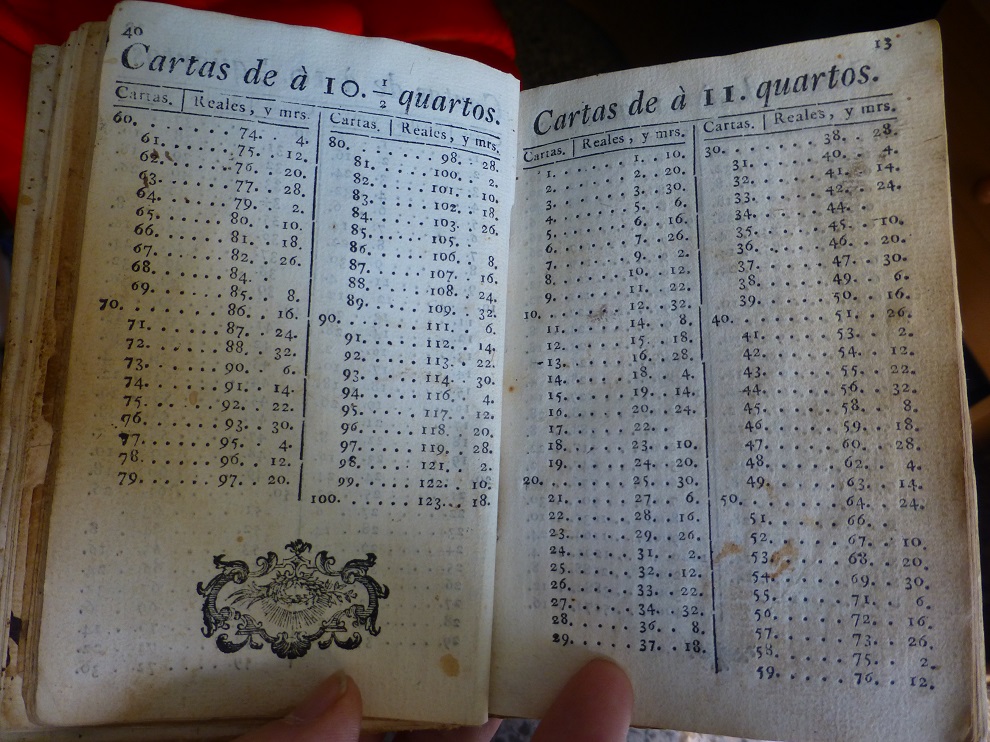 40
Cartas de à 10. 1/2 quartos.
Cartas. | Reales, y mrs.
60. . . . . . . . 74. . 4.
61. . . . . . . 75. . 12.
62. . . . . . . 76. . 20.
63. . . . . . . 77. . 28.
64. . . . . . . 79. . 2.
65. . . . . . . 80. . 10.
66. . . . . . . 81. . 18.
67. . . . . . . 82. . 26.
68. . . . . . . 84.
69. . . . . . . 85. . 8.
70. . . . . . . . 86. . 16.
71. . . . . . . 87. . 24.
72. . . . . . . 88. . 32.
73. . . . . . . 90. . 6.
74. . . . . . . 91. . 14.
75. . . . . . . 92. . 22.
76. . . . . . . 93. . 30.
77. . . . . . . 95. . 4.
78. . . . . . . 96. . 12.
79. . . . . . . 97. . 20.
Cartas. | Reales, y mrs.
80. . . . . . . . 98. . 28.
81. . . . . . 100. . 2.
82. . . . . . 101. . 10.
83. . . . . . 102. . 18.
84. . . . . . 103. . 26.
85. . . . . . 105. .
86. . . . . . 106. . 8.
87. . . . . . 107. . 16.
88. . . . . . 108. . 24.
89. . . . . . 109. . 32.
90. . . . . . . . 111. . 6.
91. . . . . . 112. . 14.
92. . . . . . 113. . 22.
93. . . . . . 114. . 30.
94. . . . . . 116. . 4.
95. . . . . . 117. . 12.
96. . . . . . 118. . 20.
97. . . . . . 119. . 28.
98. . . . . . 121. . 2.
99. . . . . . 122. . 10.
100. . . . . . . 123. . 18.
13
Cartas de à 11. quartos.
Cartas. | Reales, y mrs.
1. . . . . . . 1. . 10.
2. . . . . . . 2. . 20.
3. . . . . . . 3. . 30.
4. . . . . . . 5. . 6.
5. . . . . . . 6. . 16.
6. . . . . . . 7. . 26.
7. . . . . . . 9. . 2.
8. . . . . . . 10. . 12.
9. . . . . . . 11. . 22.
10. . . . . . . . 12. . 32.
11. . . . . . 14. . 8.
12. . . . . . 15. . 18.
13. . . . . . 16. . 28.
14. . . . . . 18. . 4.
15. . . . . . 19. . 14.
16. . . . . . 20. . 24.
17. . . . . . 22.
18. . . . . . 23. . 10.
19. . . . . . 24. . 20.
20. . . . . . . . 25. . 30.
21. . . . . . 27. . 6.
22. . . . . . 28. . 16.
23. . . . . . 29. . 26.
24. . . . . . 31. . 2.
25. . . . . . 32. . 12.
26. . . . . . 33. . 22.
27. . . . . . 34. . 32.
28. . . . . . 36. . 8.
29. . . . . . 37. . 18.
Cartas. | Reales, y mrs.
30. . . . . . . . 38. . 28.
31. . . . . . 40. . 4.
32. . . . . . 41. . 14.
33. . . . . . 42. . 24.
34. . . . . . 44. .
35. . . . . . 45. . 10.
36. . . . . . 46. . 20.
37. . . . . . 47. . 30.
38. . . . . . 49. . 6.
39. . . . . . 50. . 16.
40. . . . . . . . 51. . 26.
41. . . . . . 53. . 2.
42. . . . . . 54. . 12.
43. . . . . . 55. . 22.
44. . . . . . 56. . 32.
45. . . . . . 58. . 8.
46. . . . . . 59. . 18.
47. . . . . . 60. . 28.
48. . . . . . 62. . 4.
49. . . . . . 63. . 14.
50. . . . . . . . 64. . 24.
51. . . . . . 66. .
52. . . . . . 67. . 10.
53. . . . . . 68. . 20.
54. . . . . . 69. . 30.
55. . . . . . 71. . 6.
56. . . . . . 72. . 16.
57. . . . . . 73. . 26.
58. . . . . . 75. . 2.
59. . . . . . 76. . 12.